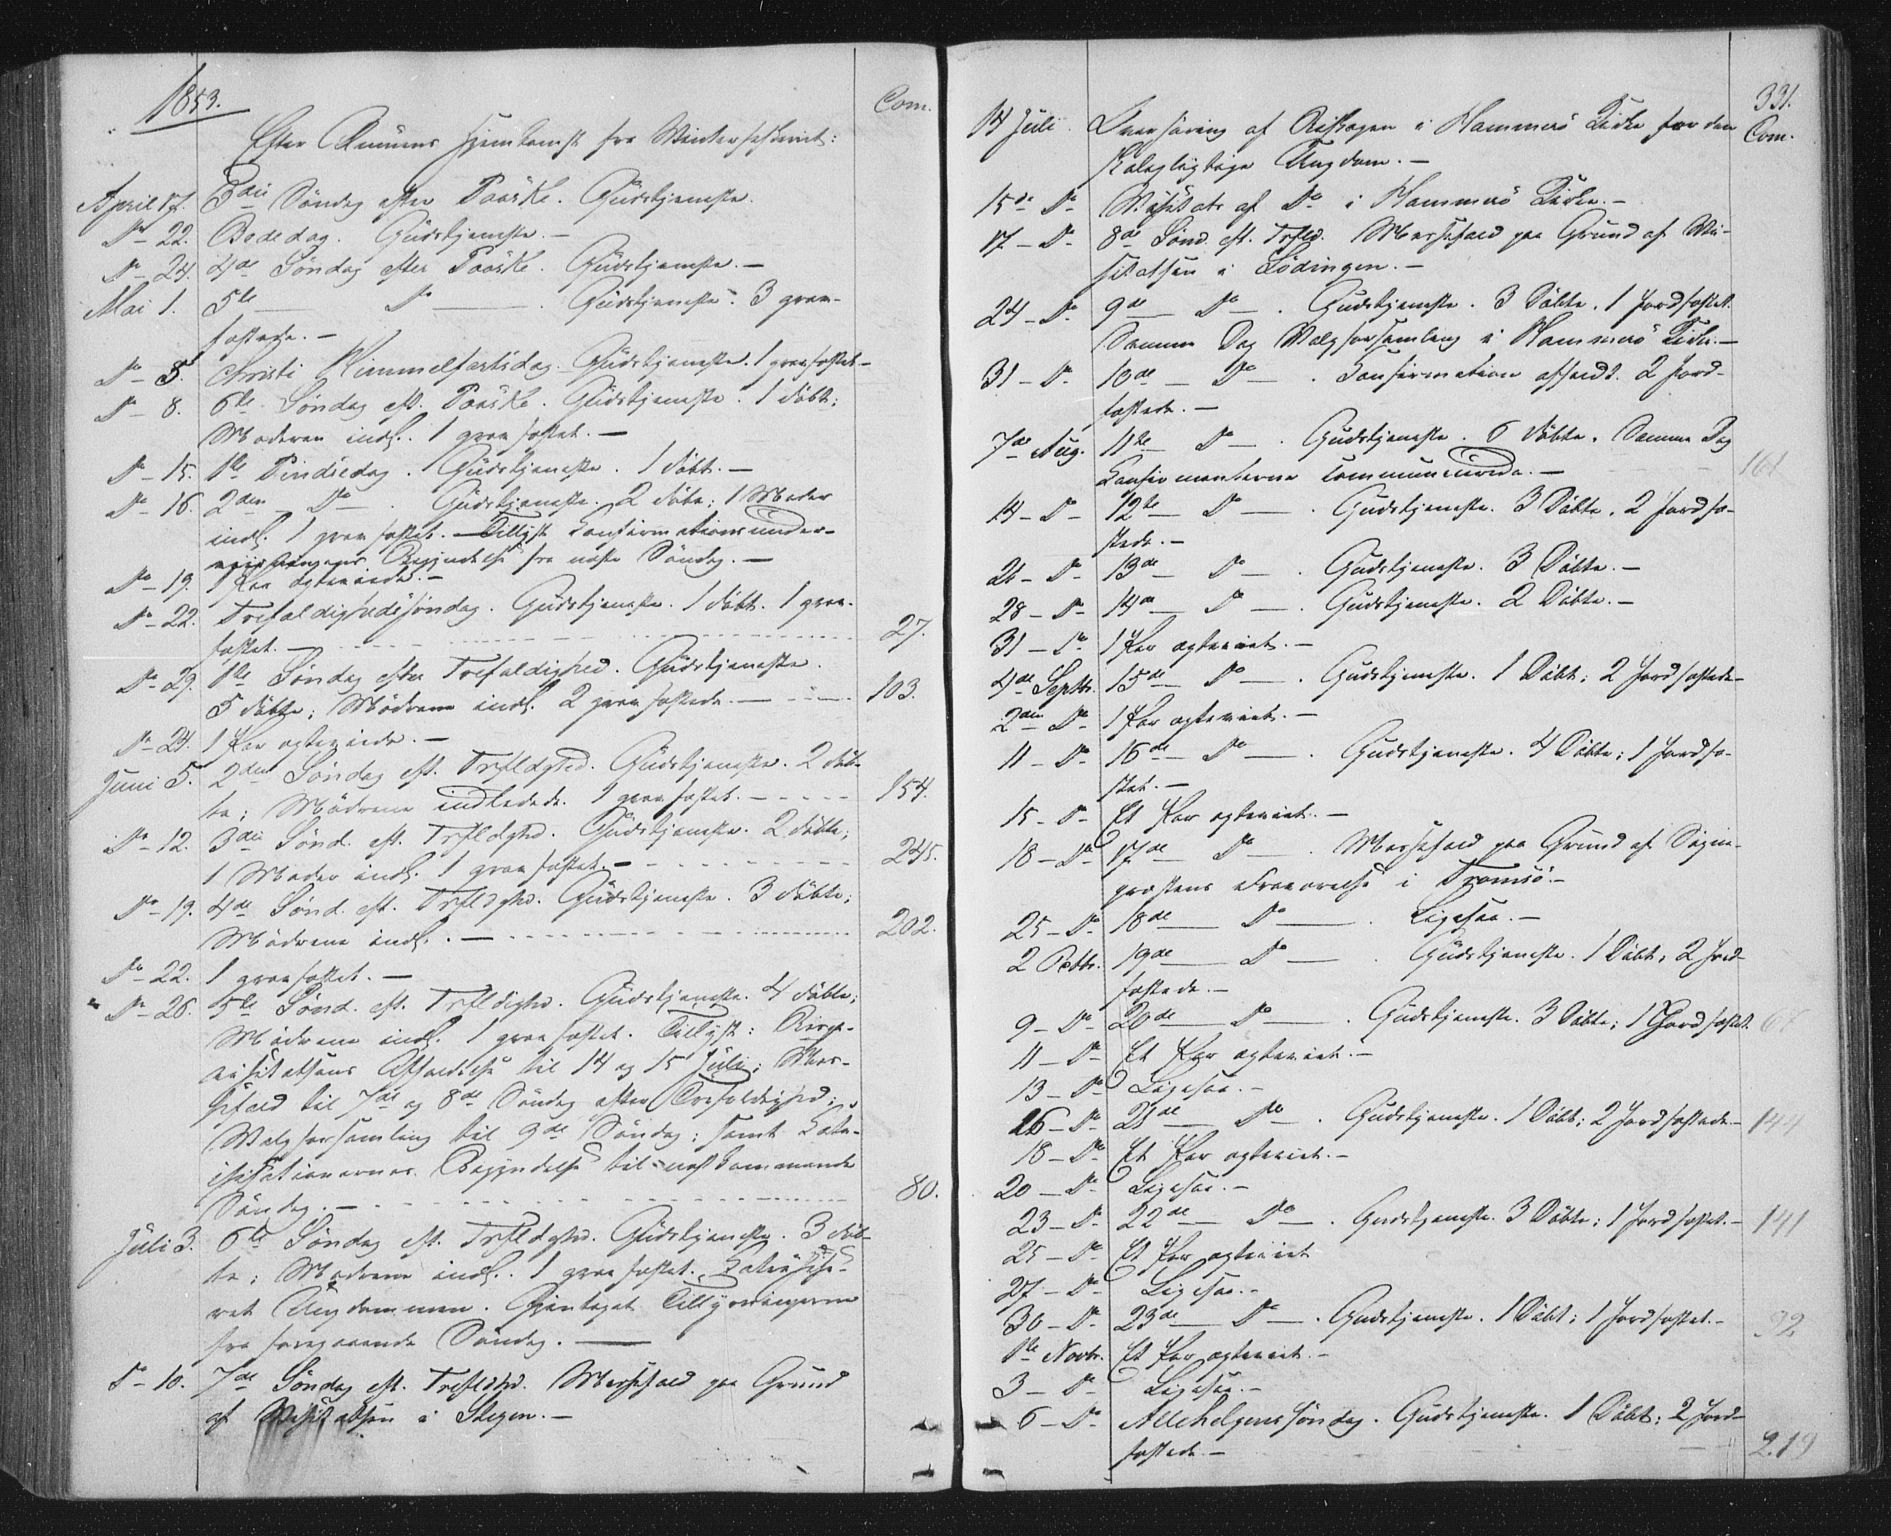 1853.
Com.
Efter Almuens Hjemkomst fra Winterfiskeriet:
April 17. 3die Søndag efter Paaske. Gudstjeneste.
Do 22. Bededag. Gudstjeneste. —
Do 24. 4de Søndag efter Paaske. Gudstjeneste. —
Mai 1. 5te — Do — . Gudstjeneste. 3 grav-
fæstede. —
Do 5. Christi Himmelfartsdag. Gudstjeneste. 1 gravfæstet —
Do 8. 6te Søndag eft. Paaske. Gudstjeneste. 1 døbt;
Moderen indl. 1 gravfæstet. —
Do 15. 1ste Pindsedag. Gudstjeneste. 1 døbt. —
Do 16. 2den — Do — . Gudstjeneste. 2 døbte; 1 Moder
indl. 1 gravfæstet. — Tillyst Konfirmationsunder-
viisningens Begyndelse fra næste Søndag. —
Do 19. 1 Par ægteviede. —
Do 22. Trefoldighedssøndag. Gudstjeneste. 1 døbt. 1 grav-
fæstet. — 27.
Do 29. 1ste Søndag efter Trefoldighed. Gudstjeneste.
5 døbte; Mødrene indl. 2 gravfæstede. — 103.
Do 24. 1 Par ægteviede. —
Juni 5. 2den Søndag eft. Trfldghed. Gudstjeneste. 2 døb-
te; Mødrene indledede. 1 gravfæstet. — 154.
Do 12. 3die Sønd. eft. Trfldghd. Gudstjeneste. 2 døbte;
1 Moder indl. 1 gravfæstet. — 245.
Do 19. 4de Sønd. eft. Trfldghd. Gudstjeneste. 3 døbte;
Mødrene indl. — 202.
Do 22. 1 gravfæstet. —
Do 26. 5te Sønd. eft. Trfldighd. Gudstjeneste. 4 døbte;
Mødrene indl. 1 gravfæstet. Tillyst: Bispe-
visitatsens Afholdelse til 14 og 15 Juli; Mes-
sefald til 7de og 8de Søndag efter Trefoldighed;
Valgforsamling til 9de Søndag; samt Kate-
isationernes Begyndelse til næstkommende
Søndag. — 80.
Juli 3. 6te Søndag eft. Trfldghd. Gudstjeneste. 3 døb-
te; Mødrene indl. 1 gravfæstet. Katechise-
ret Ungdommen. Gjentaget Tillysningerne
fra foregaaende Søndag. —
Do 10. 7de Søndag eft. Trfldghd. Messefald paa Grund
af Visitatsen i Stegen. —
331.
Com.
14 Juli. Overhøring af Biskopen i Hammerø Kirke for den
skolepligtige Ungdom. —
15de Do Visitats af Do i Hammerø Kirke. —
17 — Do 8de Sønd. eft. Trfld. Messefald paa Grund af Vi-
sitatsen i Lødingen. —
24 — Do 9de — Do — . Gudstjeneste. 3 Døbte. 1 Jordfæstet.
Samme Dag Valgforsamling i Hammerø Kirke. —
31 — Do 10de — Do — . Konfirmation afholdt. 2 Jord-
fæstede. —
7de Aug. 11te Do — . Gudstjeneste. 6 døbte. Samme Dag
Konfirmanterne kommunicerede. — 161
14 — Do 12te — Do — . Gudstjeneste. 3 Døbte. 2 Jordfæ-
stede. —
21 — Do 13de — Do — . Gudstjeneste. 3 Døbte. —
28 — Do 14de — Do — . Gudstjeneste. 2 Døbte. —
31 — Do 1 Par ægteviet. —
4de Septbr. 15de — Do — . Gudstjeneste. 1 Døbt; 2 Jordfæstede —
2den Do 1 Par ægteviet. —
11 — Do 16de — Do — . Gudstjeneste. 4 Døbte; 1 Jordfæ-
stet. —
15 — Do Et Par ægteviet. —
18 — Do 17de — Do — . Messefald paa Grund af Sogne-
præstens Fraværelse i Tromsø. —
25 — Do 18de — Do — . Ligesaa. —
2 Octbr. 19de — Do — . Gudstjeneste. 1 Døbt; 2 Jord-
fæstede. —
9 — Do 20de — Do — . Gudstjeneste. 3 Døbte; 1 Jordfæstet.
11 — Do Et Par ægteviet. —
13 — Do Ligesaa. —
16 — Do 21de — Do — . Gudstjeneste. 1 Døbt; 2 Jordfæstede — 144
18 — Do Et Par ægteviet. —
20 — Do Ligesaa. —
23 — Do 22de — Do — . Gudstjeneste. 3 Døbte; 1 Jordfæstet. — 141
25 — Do Et Par ægteviet
27 — Do Ligesaa. —
30 — Do 23de — Do — . Gudstjeneste. 1 Døbt; 1 Jordfæstet. — 92
1ste Novbr. Et Par ægteviet. —
3 — Do Ligesaa. —
6 — Do Allehelgenssøndag. Gudstjeneste. 1 Døbt; 2 Jord-
fæstede. — 219